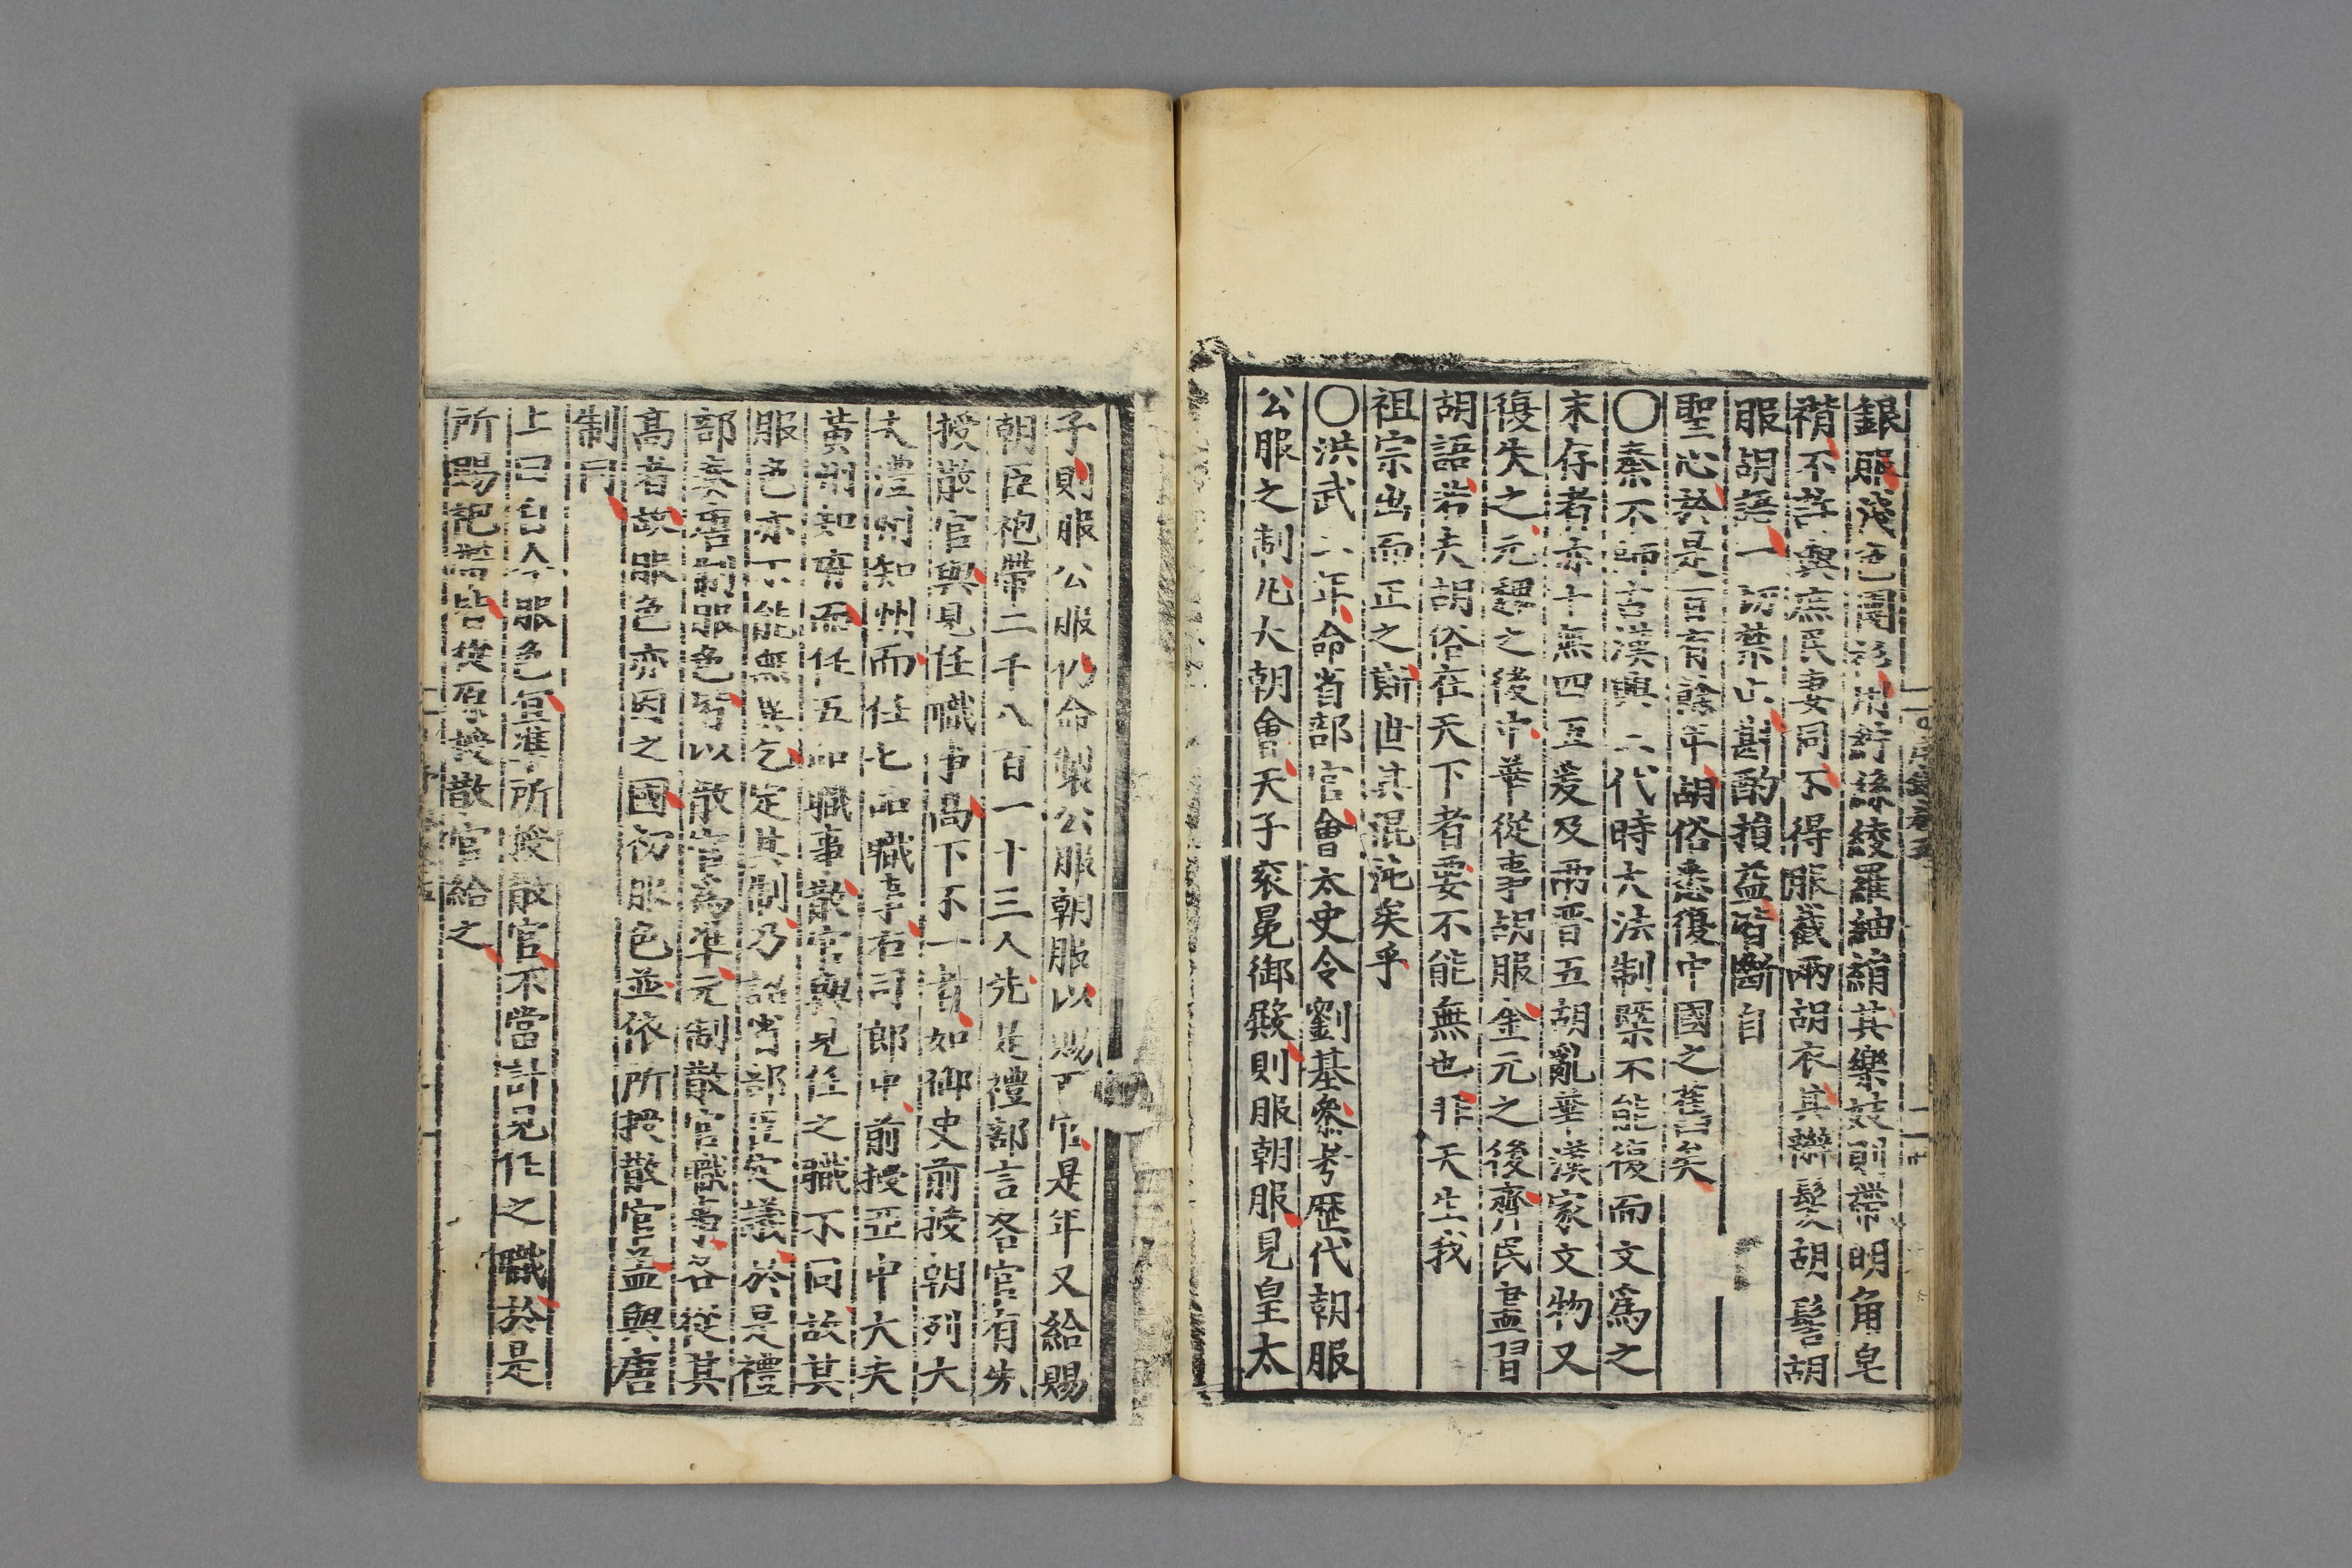 銀服淺色團衫用紵絲綾羅紬絹其樂妓則帶明角皂
褙不許與庶民妻同不得服截兩胡衣其辮髮胡髻胡
服胡語一切禁止斟酌損益皆斷自
聖心於是百有餘年胡俗悉復中國之舊矣
〇秦不師古漢興三代時六法制槩不能復而文爲之
末存者亦十無四五爰及兩晋五胡亂華漢家文物又
復失之元魏之後中華從事胡服金元之後齊民盡習
胡語若夫胡俗在天下者要不能無也非天生我
祖宗出而正之斯世其混沌矣乎
〇洪武 年命省部官會太史令劉基叅考歷代朝服
公服之制凡大朝會天子衮冕御殿則服朝服見皇太
子則服公服仍命製公服朝服以賜百官是年又給賜
朝臣袍帶二千八百一十三人先是禮部言各官有先
授散官與見任職事高下不一者如御史前授朝列大
夫澧州知州而任七品職事右司郎中前授亞中大夫
黃州知府而任五品職事散官與見任之職不同故其
服色亦不能無異乞定其制乃詔省部臣定議於是禮
部奏唐制服色皆以散官爲準元制散官職事各從其
高者故服色亦因之國初服色並依所授散官蓋與唐
制同
上曰自今服色宜準所授散官不當計見任之職於是
所賜袍帶皆從原授散官給之